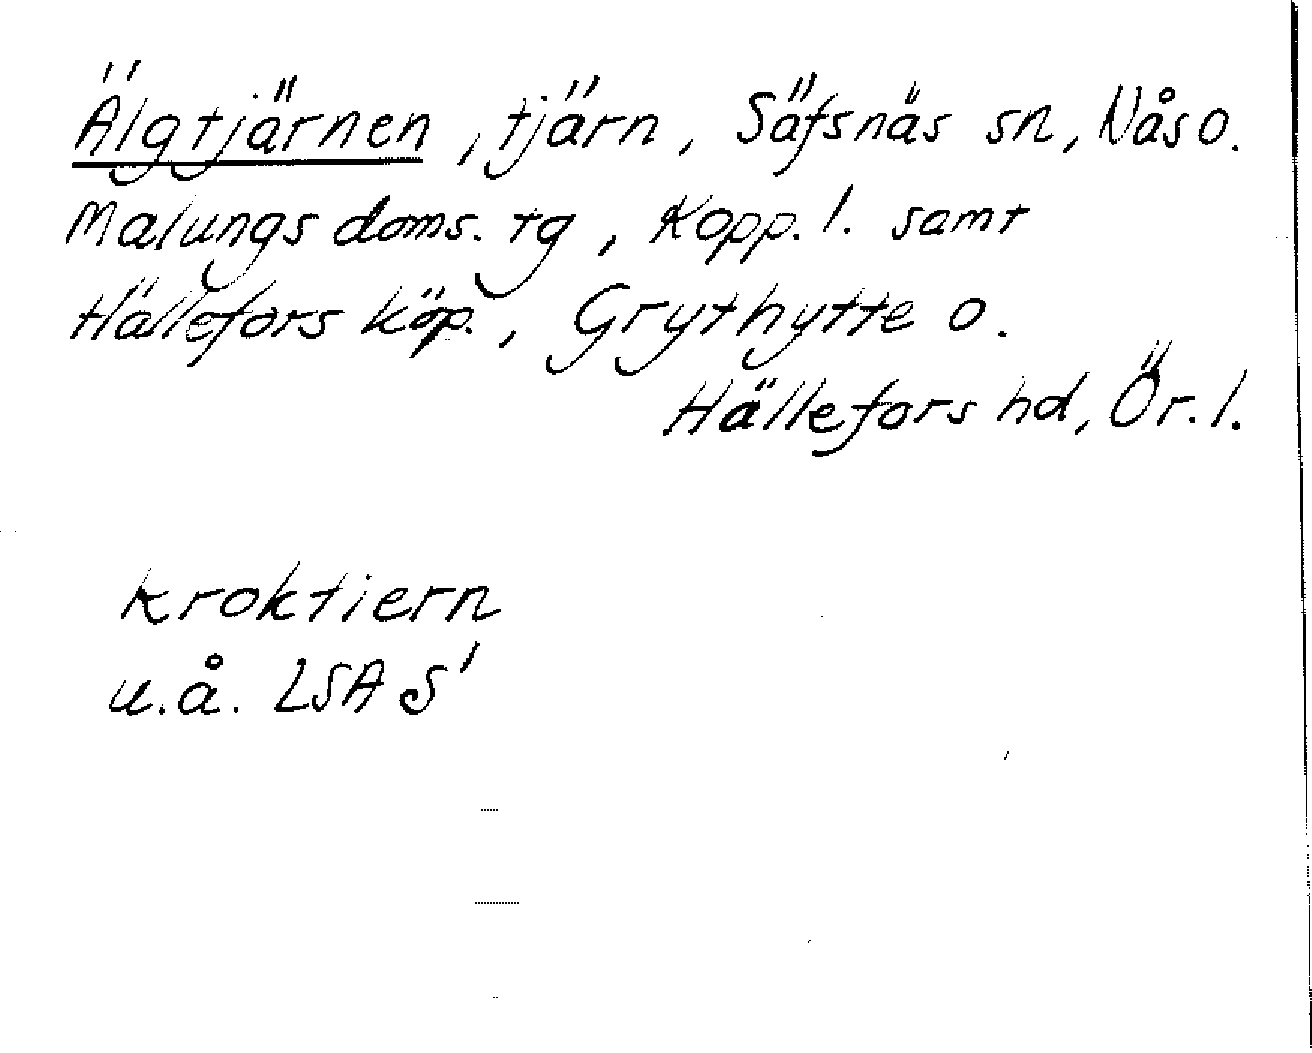 Älgtjärnen, tjärn, Säfsnäs sn, Nås o.
Malungs doms. tg, Kopp. l. samt
Hällefors köp., Grythytte o.
Hällefors hd, Ör. l.
kroktiern
u.å. LSA S'